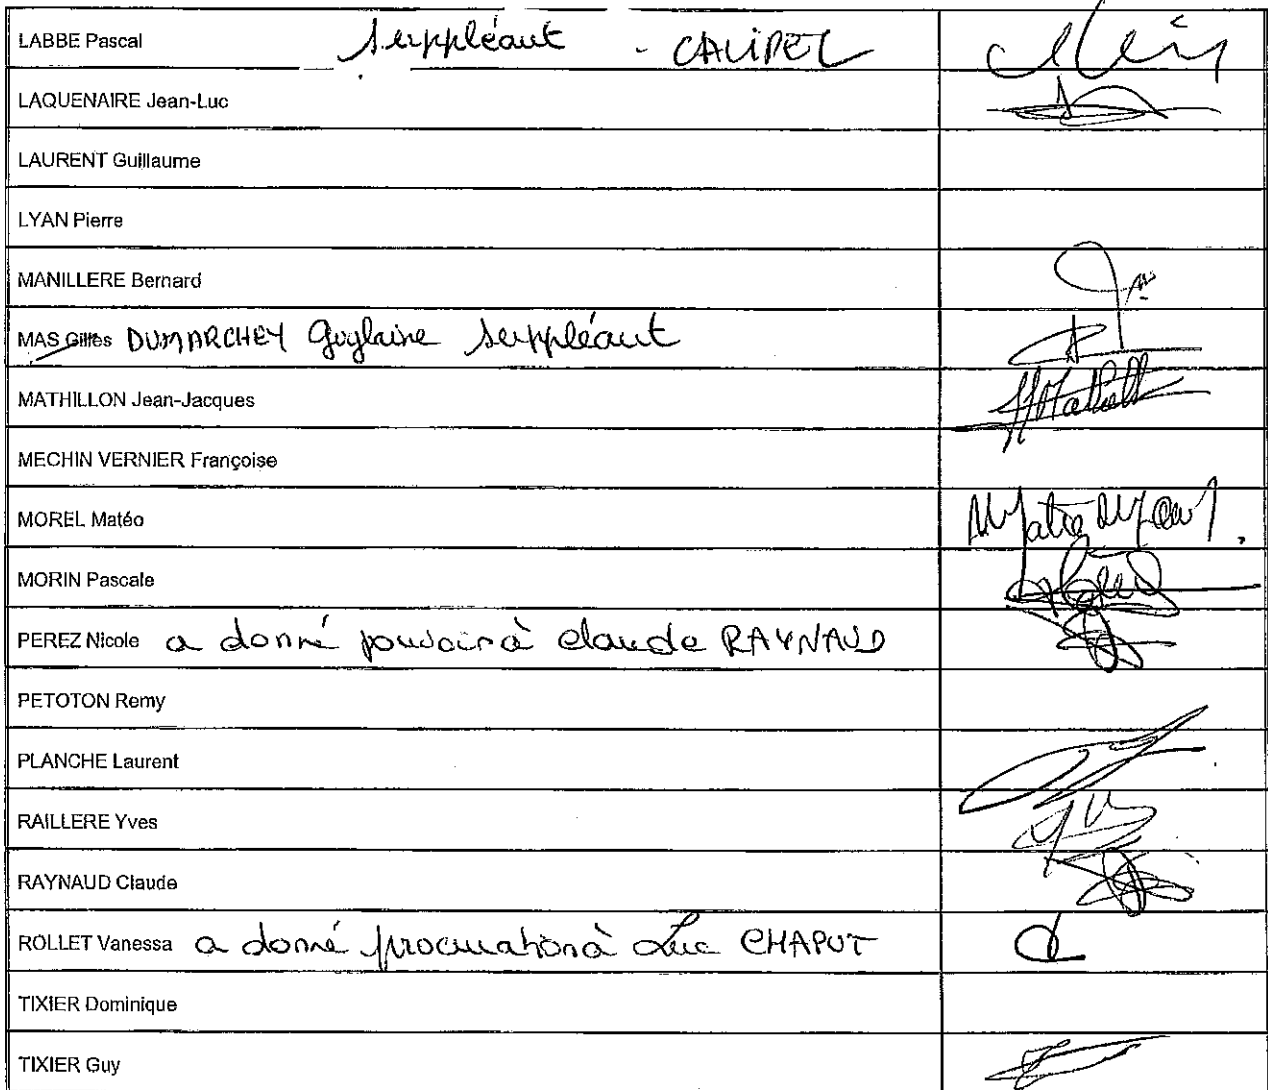 LABBE Pascal suppléant - CALIPEL
LAQUENAIRE Jean-Luc
LAURENT Guillaume
LYAN Pierre
MANILLERE Bernard
MAS Gilles DUMARCHEY Guylaine suppléant
MATHILLON Jean-Jacques
MECHIN VERNIER Françoise
MOREL Matéo
MORIN Pascale
PEREZ Nicole a donné pouvoir à Claude RAYNAUD
PETOTON Remy
PLANCHE Laurent
RAILLERE Yves
RAYNAUD Claude
ROLLET Vanessa a donné procuration à Luc CHAPUT
TIXIER Dominique
TIXIER Guy